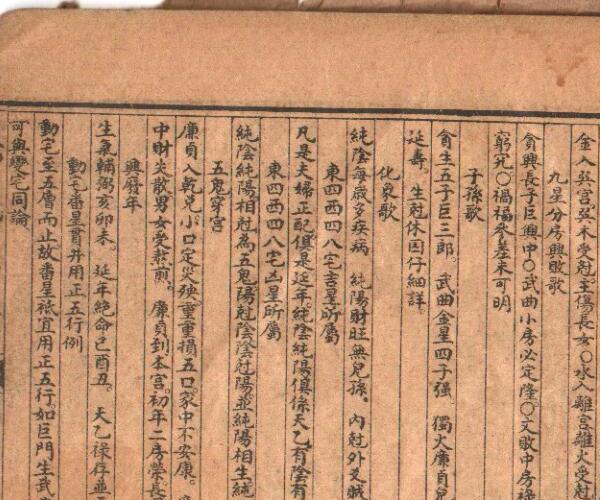 金入巽宮。巽木受尅。主傷長女〇水入離宮。離火受尅
九星分房興敗歌
貪興長子巨興中〇武曲小房必定隆〇文敗中房祿
窮兇〇禍福參差未可明
子孫歌
貪生五子巨三郎。武曲金星四子强。獨火廉貞兒
延壽。生尅休囚仔細詳。
化象歌
純陰每歲多疾病 純陽財旺無兒孫。內尅外爻賊
東四西四八宅吉星所屬
凡是夫婦正配俱是延年。純陰純陽俱係天乙有陰有
東四西四八宅凶星所屬
純陰純陽相尅為五鬼。陽尅陰陰尅陽並純陽相生純
五鬼穿宮
廉貞入乾兌。小口定災殃。重重損五口。家中不安康。
中財炎散男女受熬煎。廉貞到本宮。初年二房榮長
興發年
生氣輔弼亥卯未。延年絕命巳酉丑。天乙祿存並
動宅番星貫井用正五行例
動宅至五層而止。故番星祗宜用正五行。如巨門生武
可與變宅同論